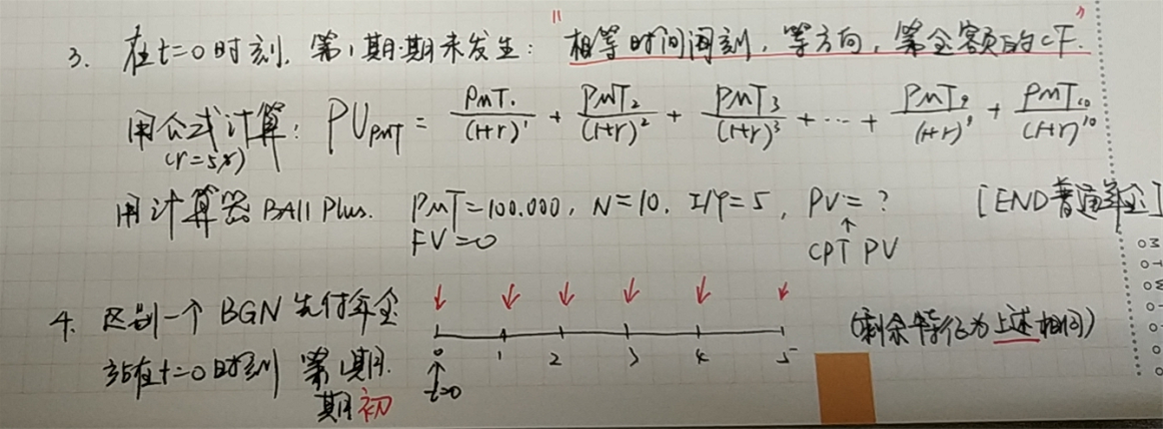 3. 在t=0时刻,第1期期末发生:"相等时间间刻,等方向,等金额的CF."
用公式计算: PV_PMT = PMT₁/(1+r)¹ + PMT₂/(1+r)² + PMT₃/(1+r)³ + … + PMT₉/(1+r)⁹ + PMT₁₀/(1+r)¹⁰
(r=5%)
用计算器 BAII Plus. PMT=100.000, N=10, I/Y=5, PV=? [END普通年金]
FV=0 ↑
CPT PV
4. 区别一个 BGN 先付年金
0 1 2 3 4 5 (剩余特征为上述相同)
站在t=0时刻 第1期 t=0
期初